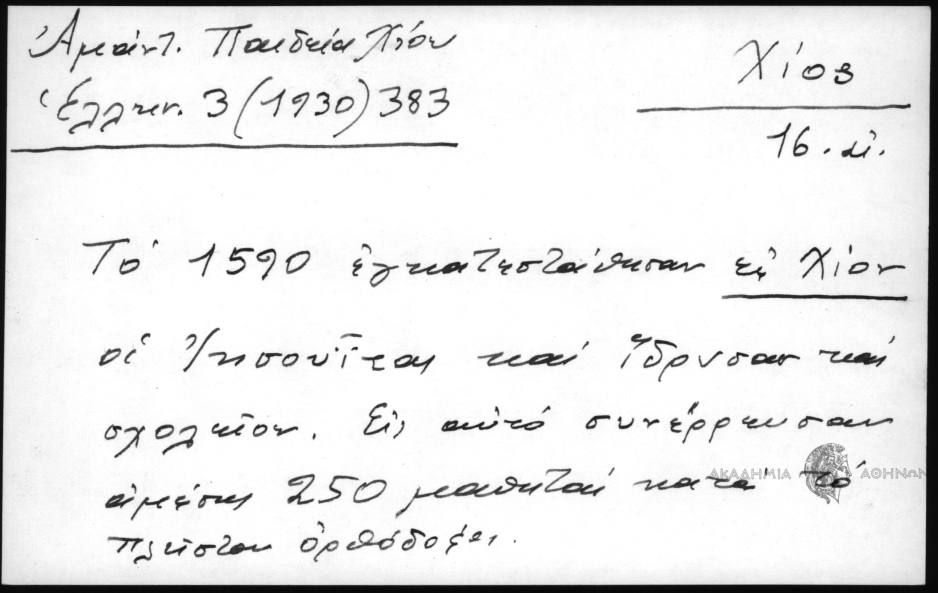 Ἀμάντ. Παιδεία Χίου
Ἑλλην. 3 (1930) 383
Χίος
16. αἰ.
Τό 1590 ἐγκατεστάθησαν εἰς Χίον
οἱ Ἰησουῗται καί ἵδρυσαν καί
σχολεῖον. Εἰς αὐτό συνέρρευσαν
ἀμέσως 250 μαθηταί κατά τό
πλεῖστον ὀρθόδοξοι.
ΑΚΑΔΗΜΙΑ ΑΘΗΝΩΝ